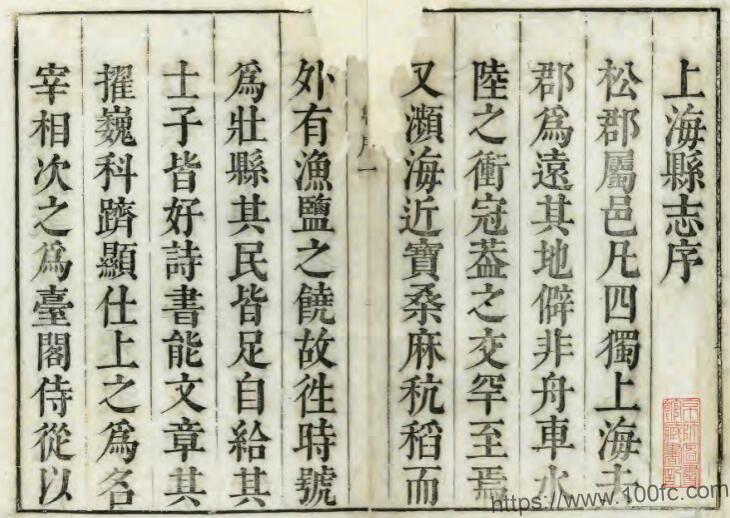 上海縣志序
松郡屬邑凡四獨上海去
郡爲遠其地僻非舟車水
陸之衝冠蓋之交罕至焉
又瀕海近寶桑麻秔稻而
外有漁鹽之饒故徃時號
爲壯縣其民皆足自給其
士子皆好詩書能文章其
擢巍科躋顯仕上之爲名
宰相次之爲臺閣侍從以
序一
京師圖書館藏書記
https://www.100fc.com